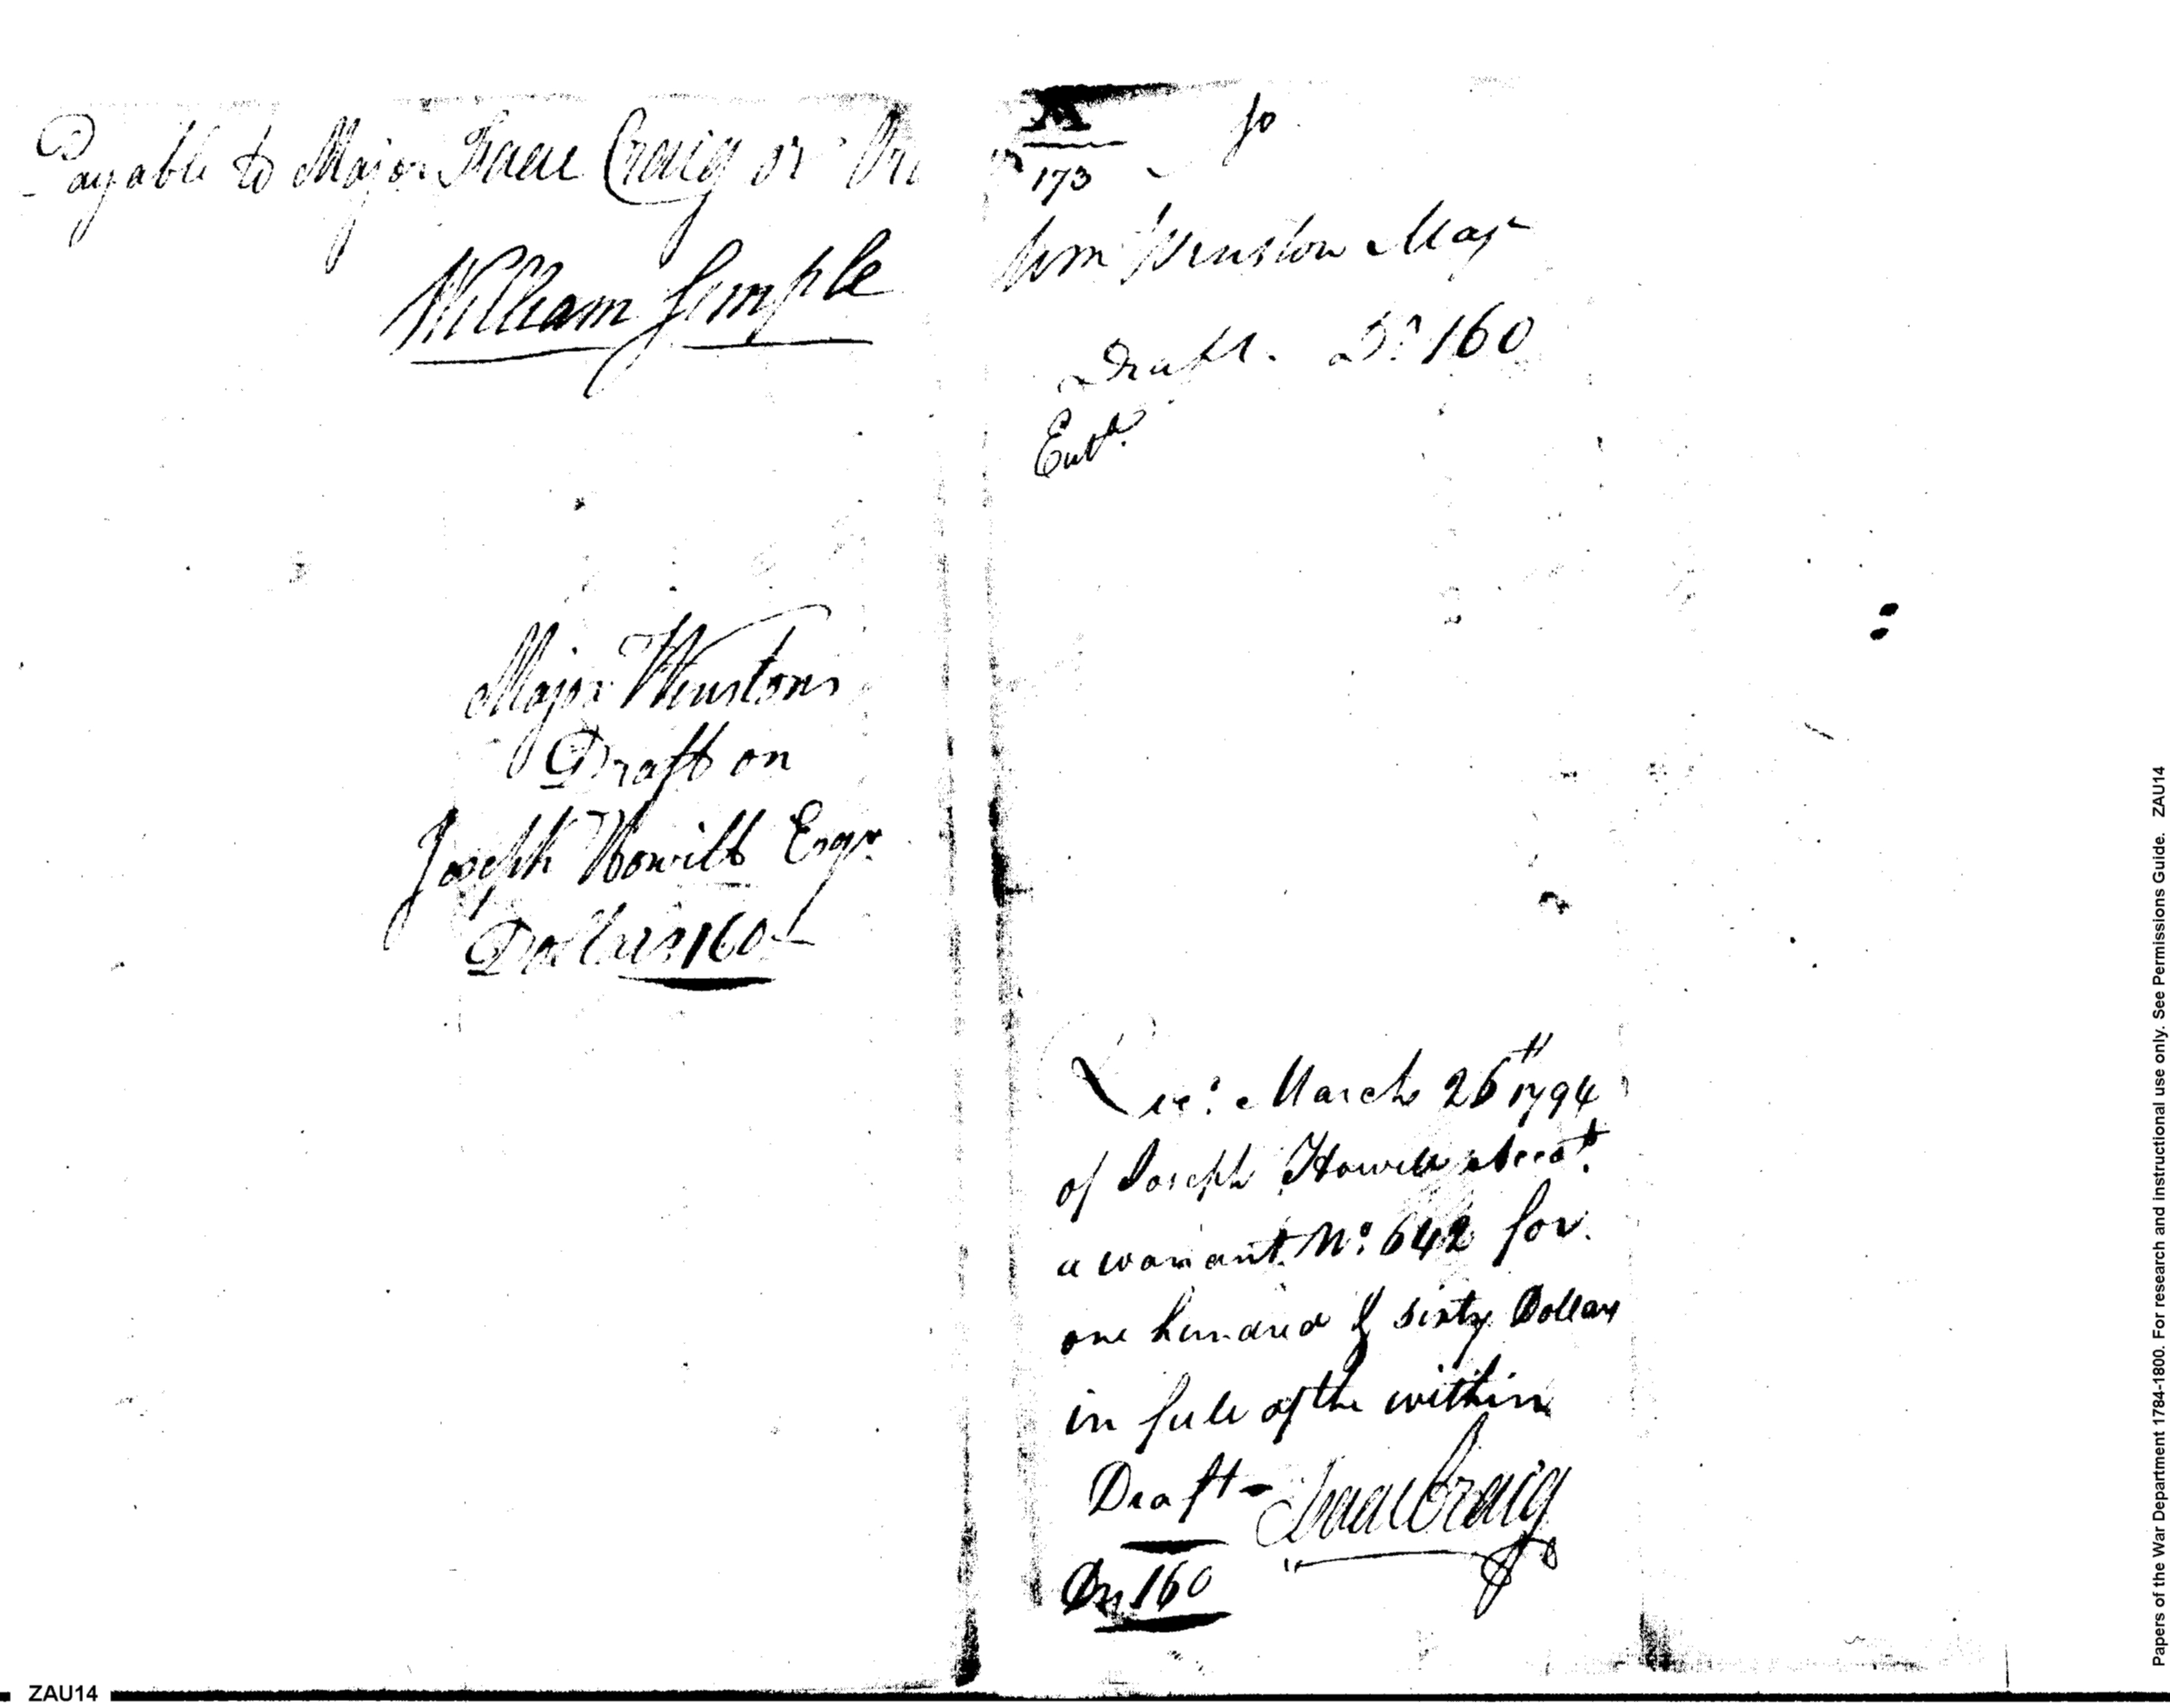 Payable to Major Isaac Craig or
William Semple
Major Winstons
Draft on
Joseph Howell Esqr.
Dollars 160
173
Wm Winston Maj
Draft. Ds 160
Entd.
Rec'd March 26th 1794
of Joseph Howell Accot.
a warrant No. 642 for
one hundred & sixty Dollars
in full of the within
Draft - Isaac Craig
Ds. 160
Papers of the War Department 1784-1800. For research and instructional use only. See Permissions Guide. ZAU14
ZAU14